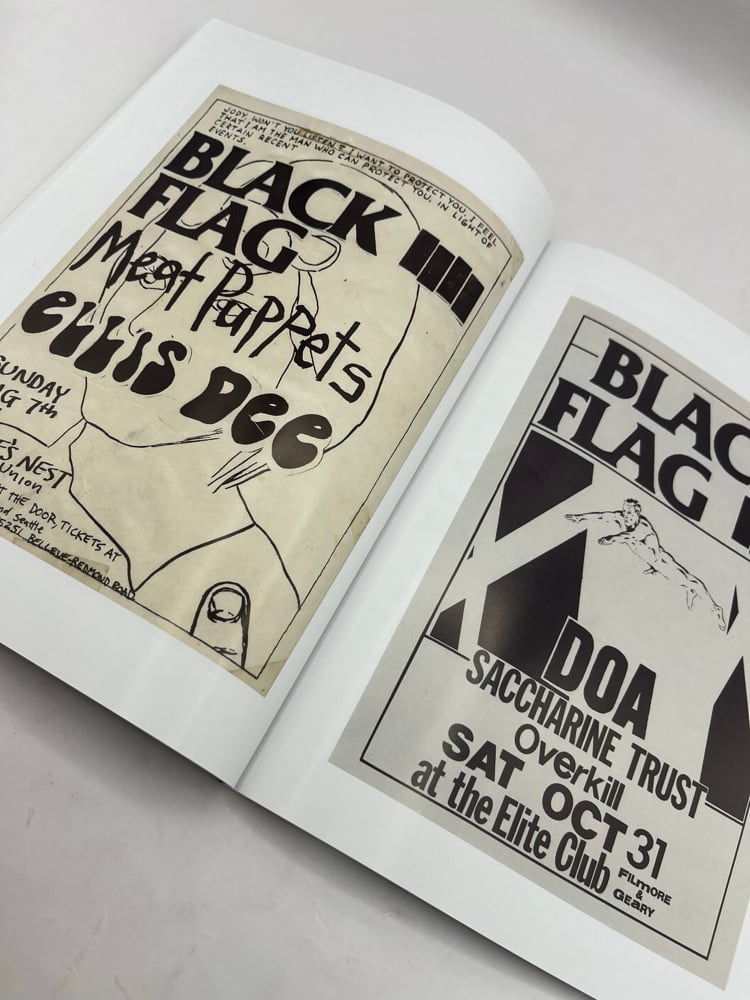 JODY, WON'T YOU LISTEN? I WANT TO PROTECT YOU. I FEEL
THAT I AM THE MAN WHO CAN PROTECT YOU, IN LIGHT OF
CERTAIN RECENT
EVENTS.
BLACK
FLAG
Meat Puppets
eLLiS Dee
SUNDAY
AG 7th
E'S NEST
Union
T THE DOOR, TICKETS AT
nd Seattle
5251 BELLEVUE-REDMOND ROAD
BLAC
FLAG
DOA
SACCHARINE TRUST
Overkill
SAT OCT 31
at the Elite Club
FILmORE
&
GeARY